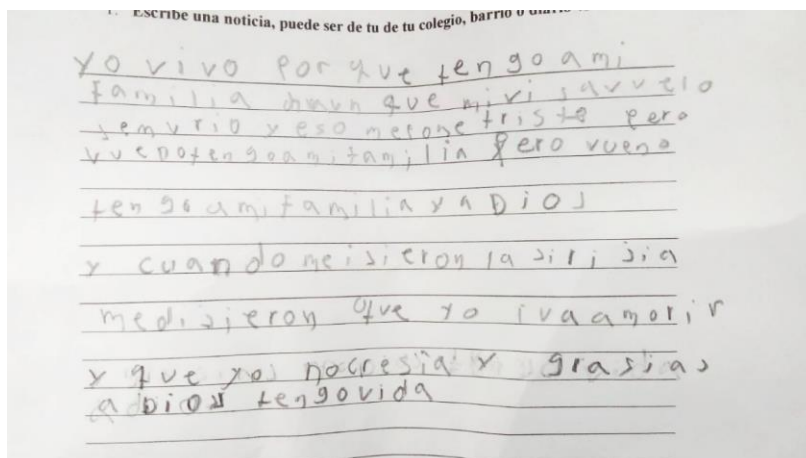 1. Escribe una noticia, puede ser de tu de tu colegio, barrio o
yo vivo por que tengoami
familia que mivisavvelo
semvrio y eso mepone triste pero
vvenotengoamifamilia pero vueno
tengo amifamilia y a DioJ
y cuando meisieron la sirijia
medisieron que yo ivaamorir
y que yo nocresia y grasias
a Dios tengovida